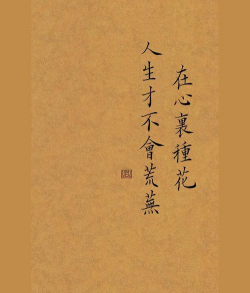 在心裏種花
人生才不會荒蕪